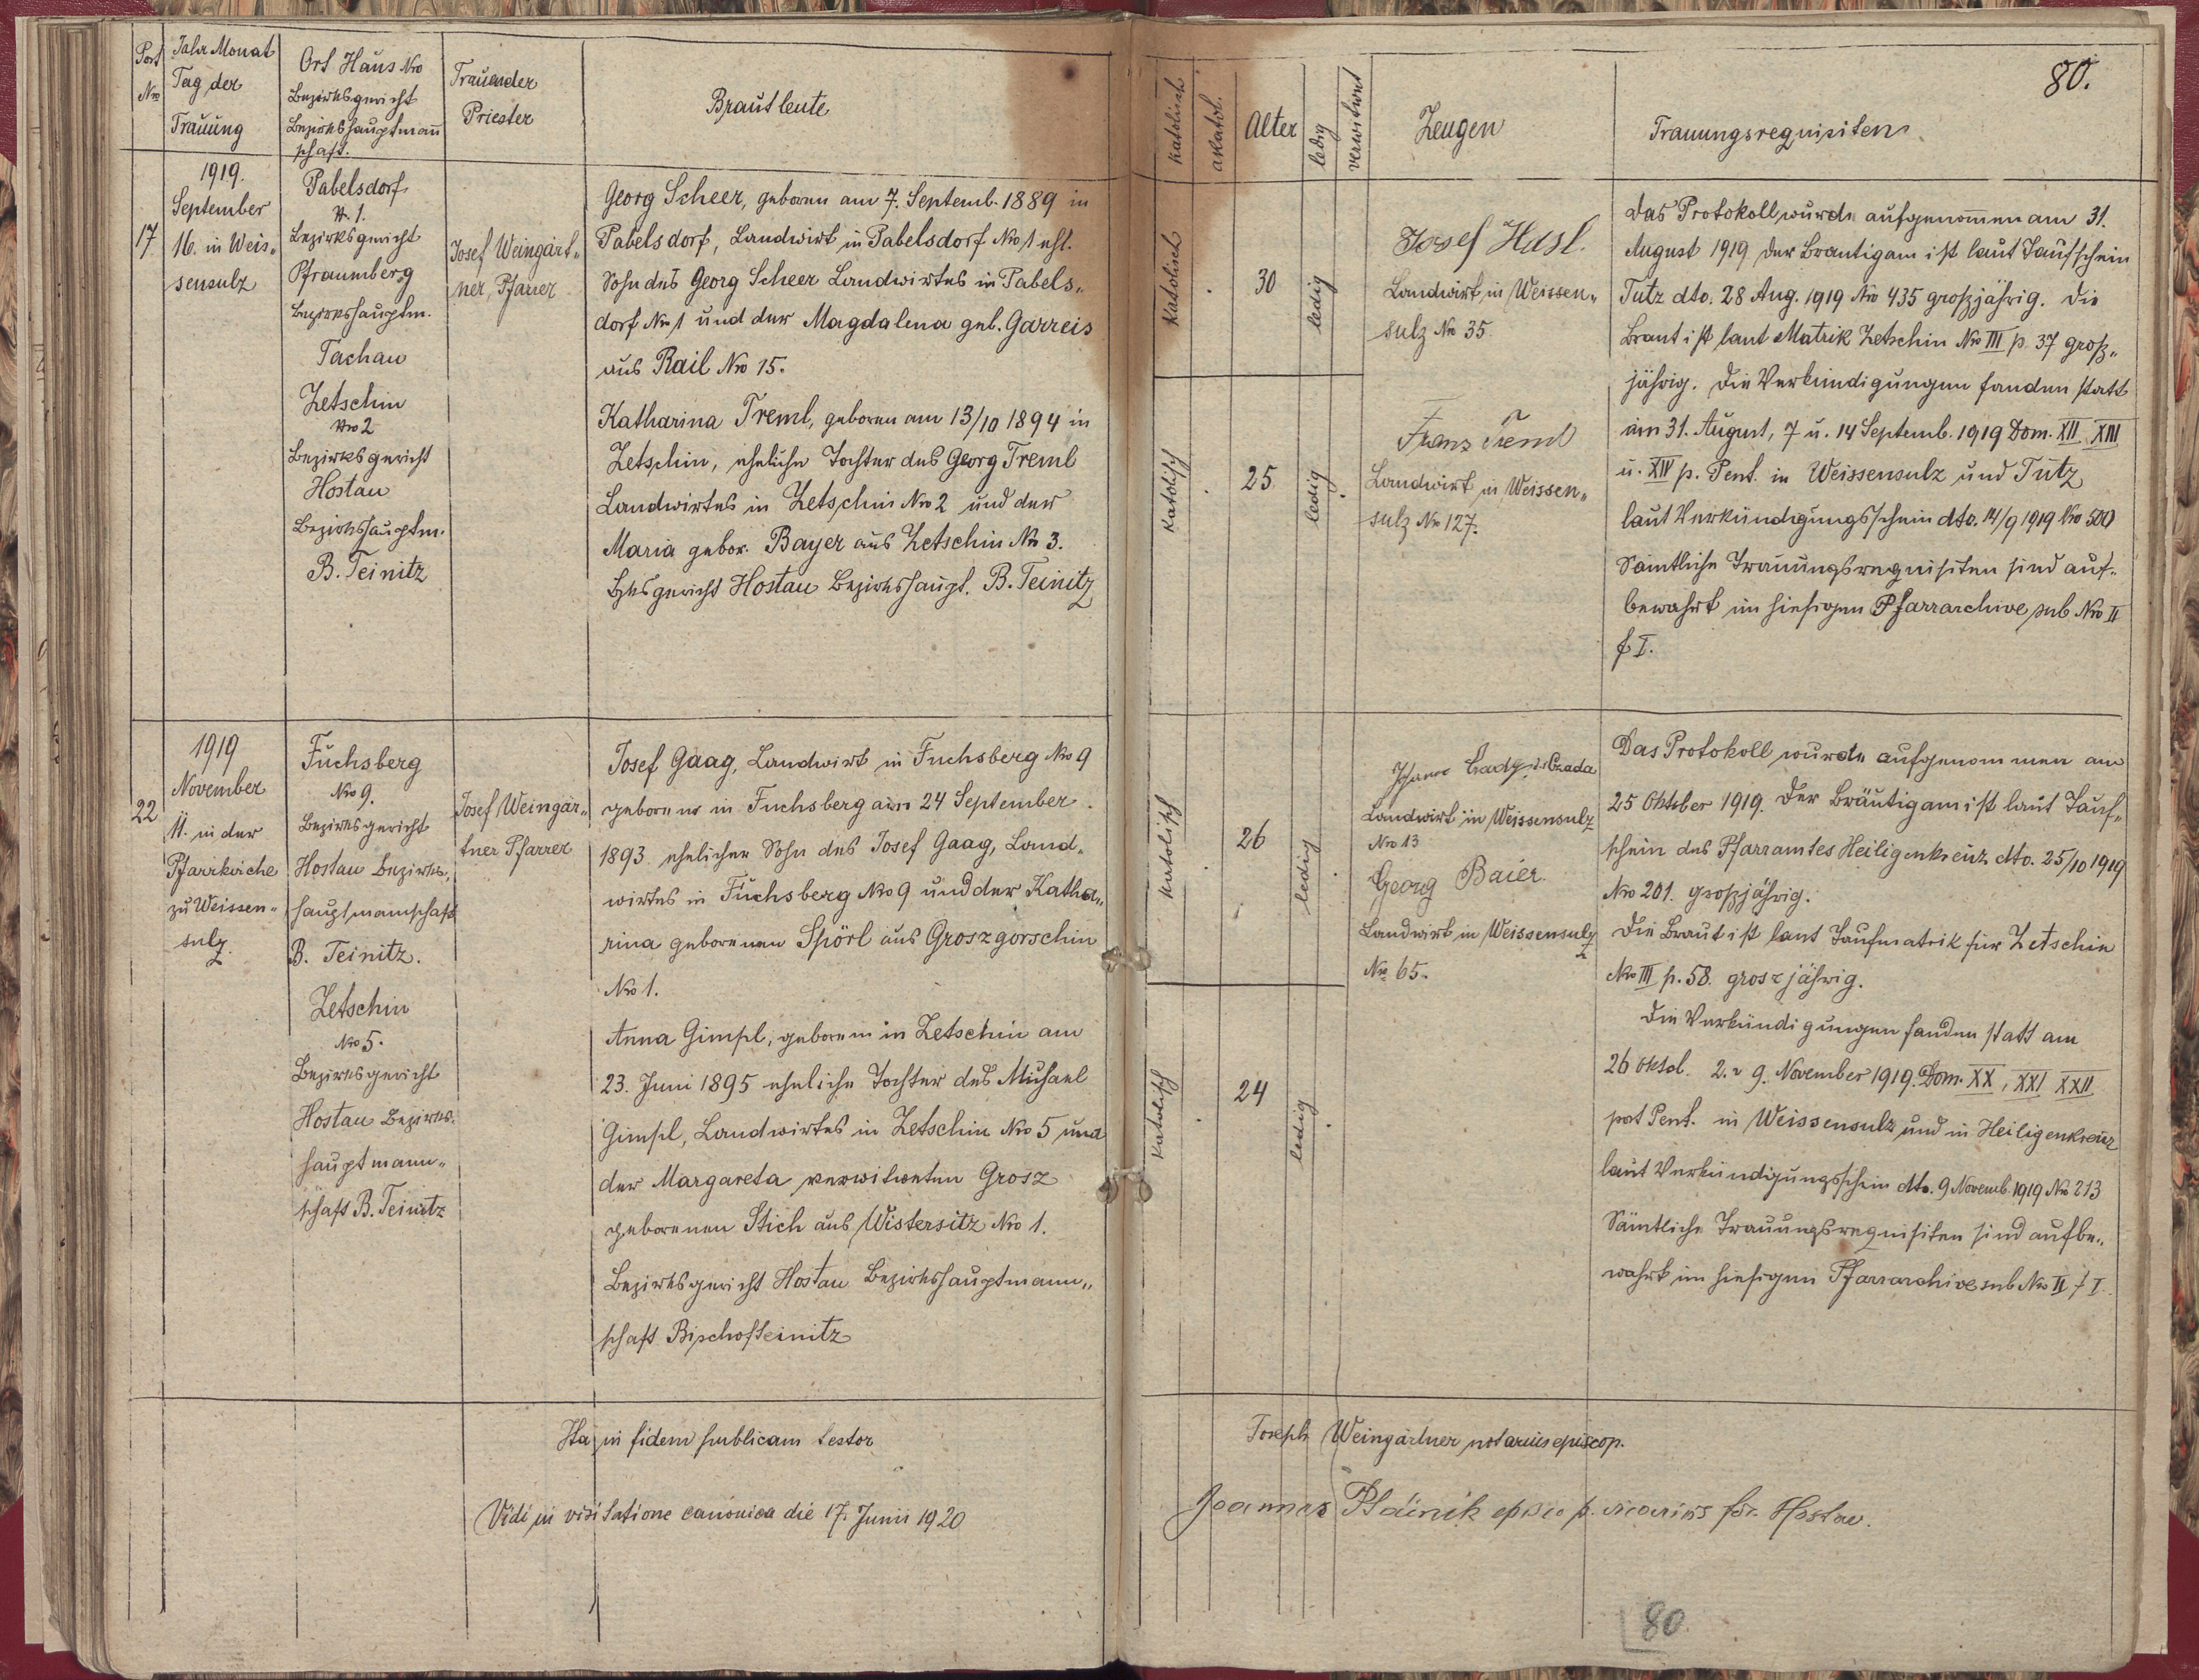 80.
Port
Nro
Jahr Monat
Tag der
Trauung
Ort Haus Nro
Bezirksgericht
Bezirkshauptmann
schaft.
Trauender
Priester
Brautleute
katolisch
akatol.
Alter
ledig
verwitwet
Zeugen
Trauungsrequisiten
17
1919.
September
16. in Weis„
sensulz
Pabelsdorf
N. 1.
Bezirksgericht
Pfraumberg
Bezirkshauptm.
Tachau
Zetschin
Nro 2
Bezirksgericht
Hostau
Bezirkshauptm.
B. Teinitz
Josef Weingärt„
ner, Pfarrer
Georg Scheer, geboren am 7. Septemb. 1889 in
Pabelsdorf, Landwirt in Pabelsdorf Nro 1 ehl.
Sohn des Georg Scheer Landwirtes in Pabels„
dorf Nro 1 und der Magdalena geb. Garreis
aus Rail Nro 15.
Katharina Treml, geboren am 13/10 1894 in
Zetschin, eheliche Tochter des Georg Treml
Landwirtes in Zetschin Nro 2 und der
Maria gebor. Bayer aus Zetschin No 3.
Bzksgericht Hostau Bezirkshaupt. B. Teinitz
Katolisch
30
ledig
Katolisch
25
ledig
Josef Hasl.
Landwirt in Weissen„
sulz No 35
Franz Treml
Landwirt in Weissen„
sulz No 127.
Das Protokoll wurde aufgenommen am 31.
August 1919 der Brautigam ist laut Taufschein
Tutz dto. 28 Aug. 1919 Nro 435 großjährig. Die
Braut ist laut Matrik Zetschin Nro III p. 37 groß„
jährig. Die Verkündigungen fanden statt
am 31. August, 7 u. 14 Septemb. 1919 Dom. XII XIII
u. XIV p. Pent. in Weissensulz und Tutz
laut Verkündigungsschein dto. 14/9 1919 Nro 500
Sämtliche Trauungsrequisiten sind auf„
bewahrt im hiesigen Pfarrarchive sub Nro II
f I.
22
1919
November
11. in der
Pfarrkirche
zu Weissen„
sulz.
Fuchsberg
Nro 9.
Bezirksgericht
Hostau Bezirks„
hauptmannschaft
B. Teinitz.
Zetschin
Nro 5.
Bezirksgericht
Hostau Bezirks„
hauptmann„
schaft B. Teinitz
Josef Weingär„
tner Pfarrer
Josef Gaag, Landwirt in Fuchsberg Nro 9
geboren in Fuchsberg am 24 September
1893 ehelicher Sohn des Josef Gaag, Land„
wirtes in Fuchsberg Nro 9 und der Katha„
rina geborenen Spörl aus Groszgorschin
Nro 1.
Anna Gimpl, geboren in Zetschin am
23. Juni 1895 eheliche Tochter des Michael
Gimpl, Landwirtes in Zetschin Nro 5 und
der Margareta verwitweten Grosz
geborenen Stich aus Wistersitz Nro 1.
Bezirksgericht Hostau Bezirkshauptmann„
schaft Bischofteinitz
Katolisch
26
ledig
Katolisch
24
ledig
Czada
Landwirt in Weissensulz
Nro 13
Georg Baier.
Landwirt in Weissensulz
No 65.
Das Protokoll wurde aufgenommen am
25 Oktober 1919. Der Bräutigam ist laut Tauf„
schein des Pfarramtes Heiligenkreuz dto. 25/10 1919
Nro 201. großjährig.
Die Braut ist laut Taufmatrik für Zetschin
Nro III p. 58. groszjährig.
Die Verkündigungen fanden statt am
26 Oktob. 2. u 9. November 1919. Dom. XX, XXI XXII
post Pent. in Weissensulz und in Heiligenkreuz
laut Verkündigungsschein dto. 9 Novemb. 1919 No 213
Sämtliche Trauungsrequisiten sind aufbe„
wahrt im hiesigen Pfarrarchive sub Nro II f I.
Ita in fidem publicam testor
Joseph Weingärtner notarius episcop.
Vidi in visitatione canonica die 17. Junii 1920
Joannes vicarius for. Hostau.
80